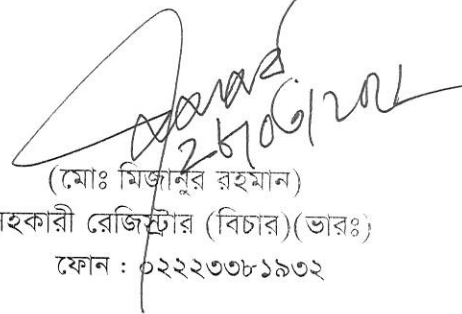 (মোঃ মিজানুর রহমান)
হকারী রেজিস্ট্রার (বিচার)(ভারঃ)
ফোন : ০২২২৩৩৮১৯৩২